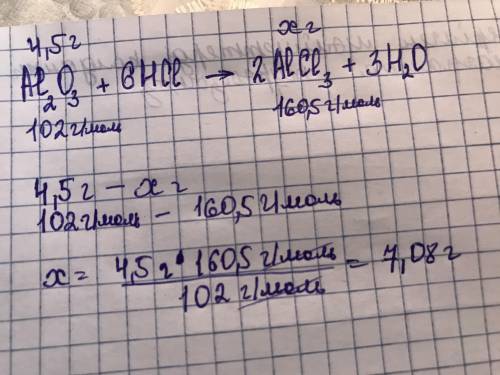 4,5г xг
Al2O3 + 6HCl → 2AlCl3 + 3H2O
102г/моль 160,5г/моль
4,5г – xг
102г/моль – 160,5г/моль
x = 4,5г · 160,5г/моль / 102 г/моль = 7,08г